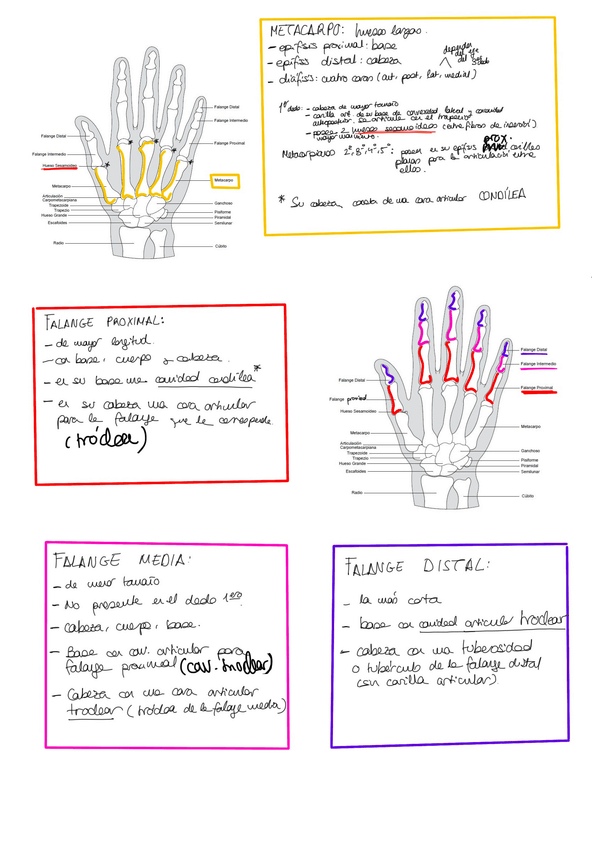 METACARPO: huesos largos.
- epífisis proximal: base
- epífisis distal: cabeza
depender
del eje
del dedo
- diáfisis: cuatro caras (ant, post, lat, medial)
1er dedo: - cabeza de mayor tamaño
- carilla art. de su base de convexidad lateral y concavidad
anteroposterior. Se articula con el trapecio
- posee 2 huesos sesamoideos (entre fibras de inserción)
mayor movimiento.
Metacarpianos 2º, 3º, 4º, 5º: poseen en su epífisis prox. carillas
planas para la articulación entre
ellos.
* Su cabeza, consta de una cara articular CONDÍLEA
Falange Distal
Falange Intermedio
Falange Proximal
Metacarpo
Ganchoso
Pisiforme
Piramidal
Semilunar
Cúbito
Falange Distal
Falange Intermedio
Hueso Sesamoideo
Metacarpo
Articulación
Carpometacarpiana
Trapezoide
Trapecio
Hueso Grande
Escafoides
Radio
FALANGE PROXIMAL:
- de mayor longitud.
- con base, cuerpo y cabeza.
- en su base una cavidad condílea *
- en su cabeza una cara articular
para la falange que le corresponde
(tróclea)
Falange Distal
Falange Intermedio
Falange Proximal
Metacarpo
Ganchoso
Pisiforme
Piramidal
Semilunar
Cúbito
Falange Distal
Falange proximal
Hueso Sesamoideo
Metacarpo
Articulación
Carpometacarpiana
Trapezoide
Trapecio
Hueso Grande
Escafoides
Radio
FALANGE MEDIA:
- de menor tamaño
- No presente en el dedo 1ero.
- Cabeza, cuerpo, base.
- Base con cav. articular para
falange proximal (cav. troclear)
- Cabeza con una cara articular
troclear (tróclea de la falange media)
FALANGE DISTAL:
- la más corta
- base con cavidad articular troclear
- cabeza con una tuberosidad
o tubérculo de la falange distal
(sin carilla articular)